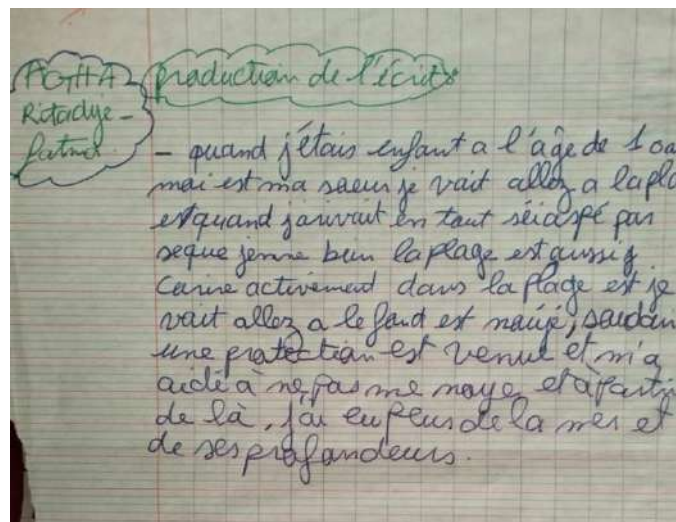 AGHA
Ritadije -
fatma
production de l'écrits
- quand j'étais enfant a l'âge de 10a
moi est ma saeur je vait allez a lapla
est quand jarivait en tout
seque jenne bien la plage est aussi j
activement dans la plage est je
vait allez a le fond est naige, soudain
une protection est venue et m'a
aidé à ne pas me noye et à parti
de là, j'ai eu peur de la mer et
de ses profondeurs.